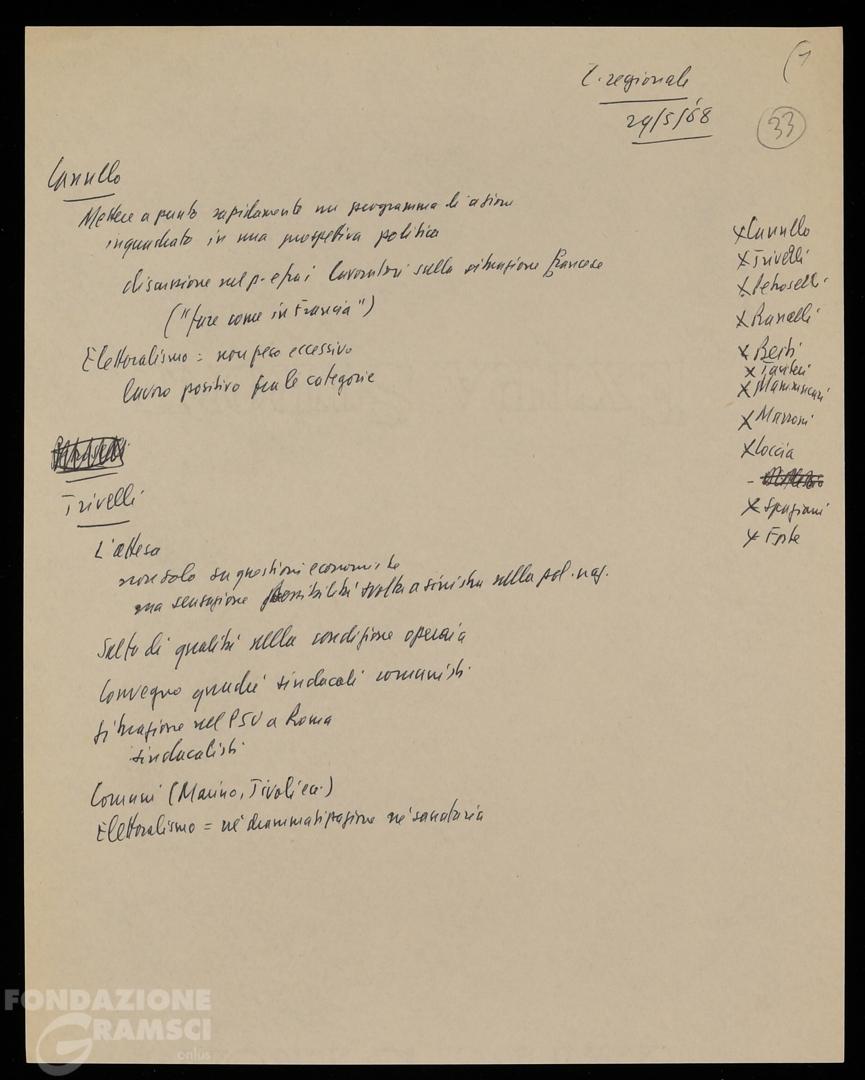 (1
C. regionale
29/5/68
33
Canullo
Mettere a punto rapidamente un programma di azione
inquadrato in una prospettiva politica
discussione nel p. e fra i lavoratori sulla situazione francese
("fare come in Francia")
Elettoralismo = non peso eccessivo
lavoro positivo fra le categorie
Trivelli
L'attesa
non solo su questioni economiche
ma sensazione possibilità svolta a sinistra nella pol. naz.
Salto di qualità nella condizione operaia
Convegno quadri sindacali comunisti
Situazione nel PSU a Roma
sindacalisti
Comuni (Marino, Tivoli ecc.)
Elettoralismo = né drammatizzazione né sanatoria
x Canullo
x Trivelli
x Petroselli
x Ranalli
x Berti
x
x Mammucari
x Marroni
x Coccia
-
x Spaziani
x Forte
FONDAZIONE
GRAMSCI
onlus